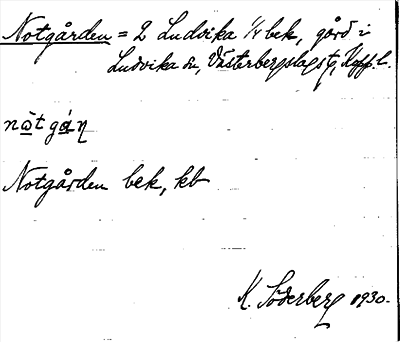 Notgården = 2 Ludvika 1/4 bek, gård i
Ludvika sn, Västerbergslags tg, Kopp. l.
nò̲t gá̲ɳ
Notgården bek, kb
K. Söderberg 1930.